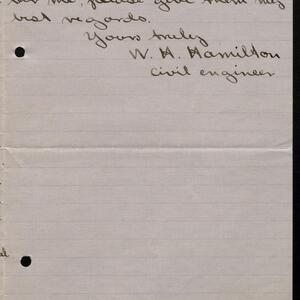 for me, please give them my
best regards.
Yours truly
W. H. Hamilton
civil engineer
al